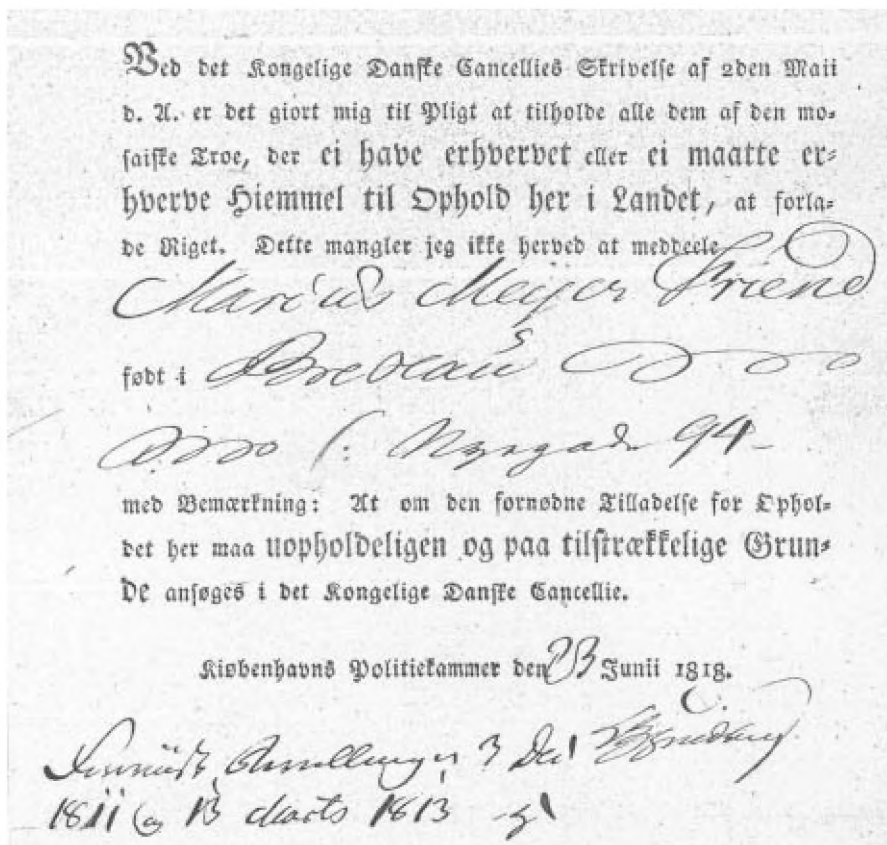 Ved det Kongelige Danske Cancellies Skrivelse af 2den Maii
d. A. er det giort mig til Pligt at tilholde alle dem af den mo-
saiske Troe, der ei have erhvervet eller ei maatte er-
hverve Hiemmel til Ophold her i Landet, at forla-
de Riget. Dette mangler jeg ikke herved at meddeele
Marcus Meyer Friend
født i Breslau
Nygade 94
med Bemærkning: At om den fornødne Tilladelse for Ophol-
det her maa uopholdeligen og paa tilstrækkelige Grun-
de ansøges i det Kongelige Danske Cancellie.
Kiøbenhavns Politiekammer den 23 Junii 1818.
3
1811 og 13 Marts 1813